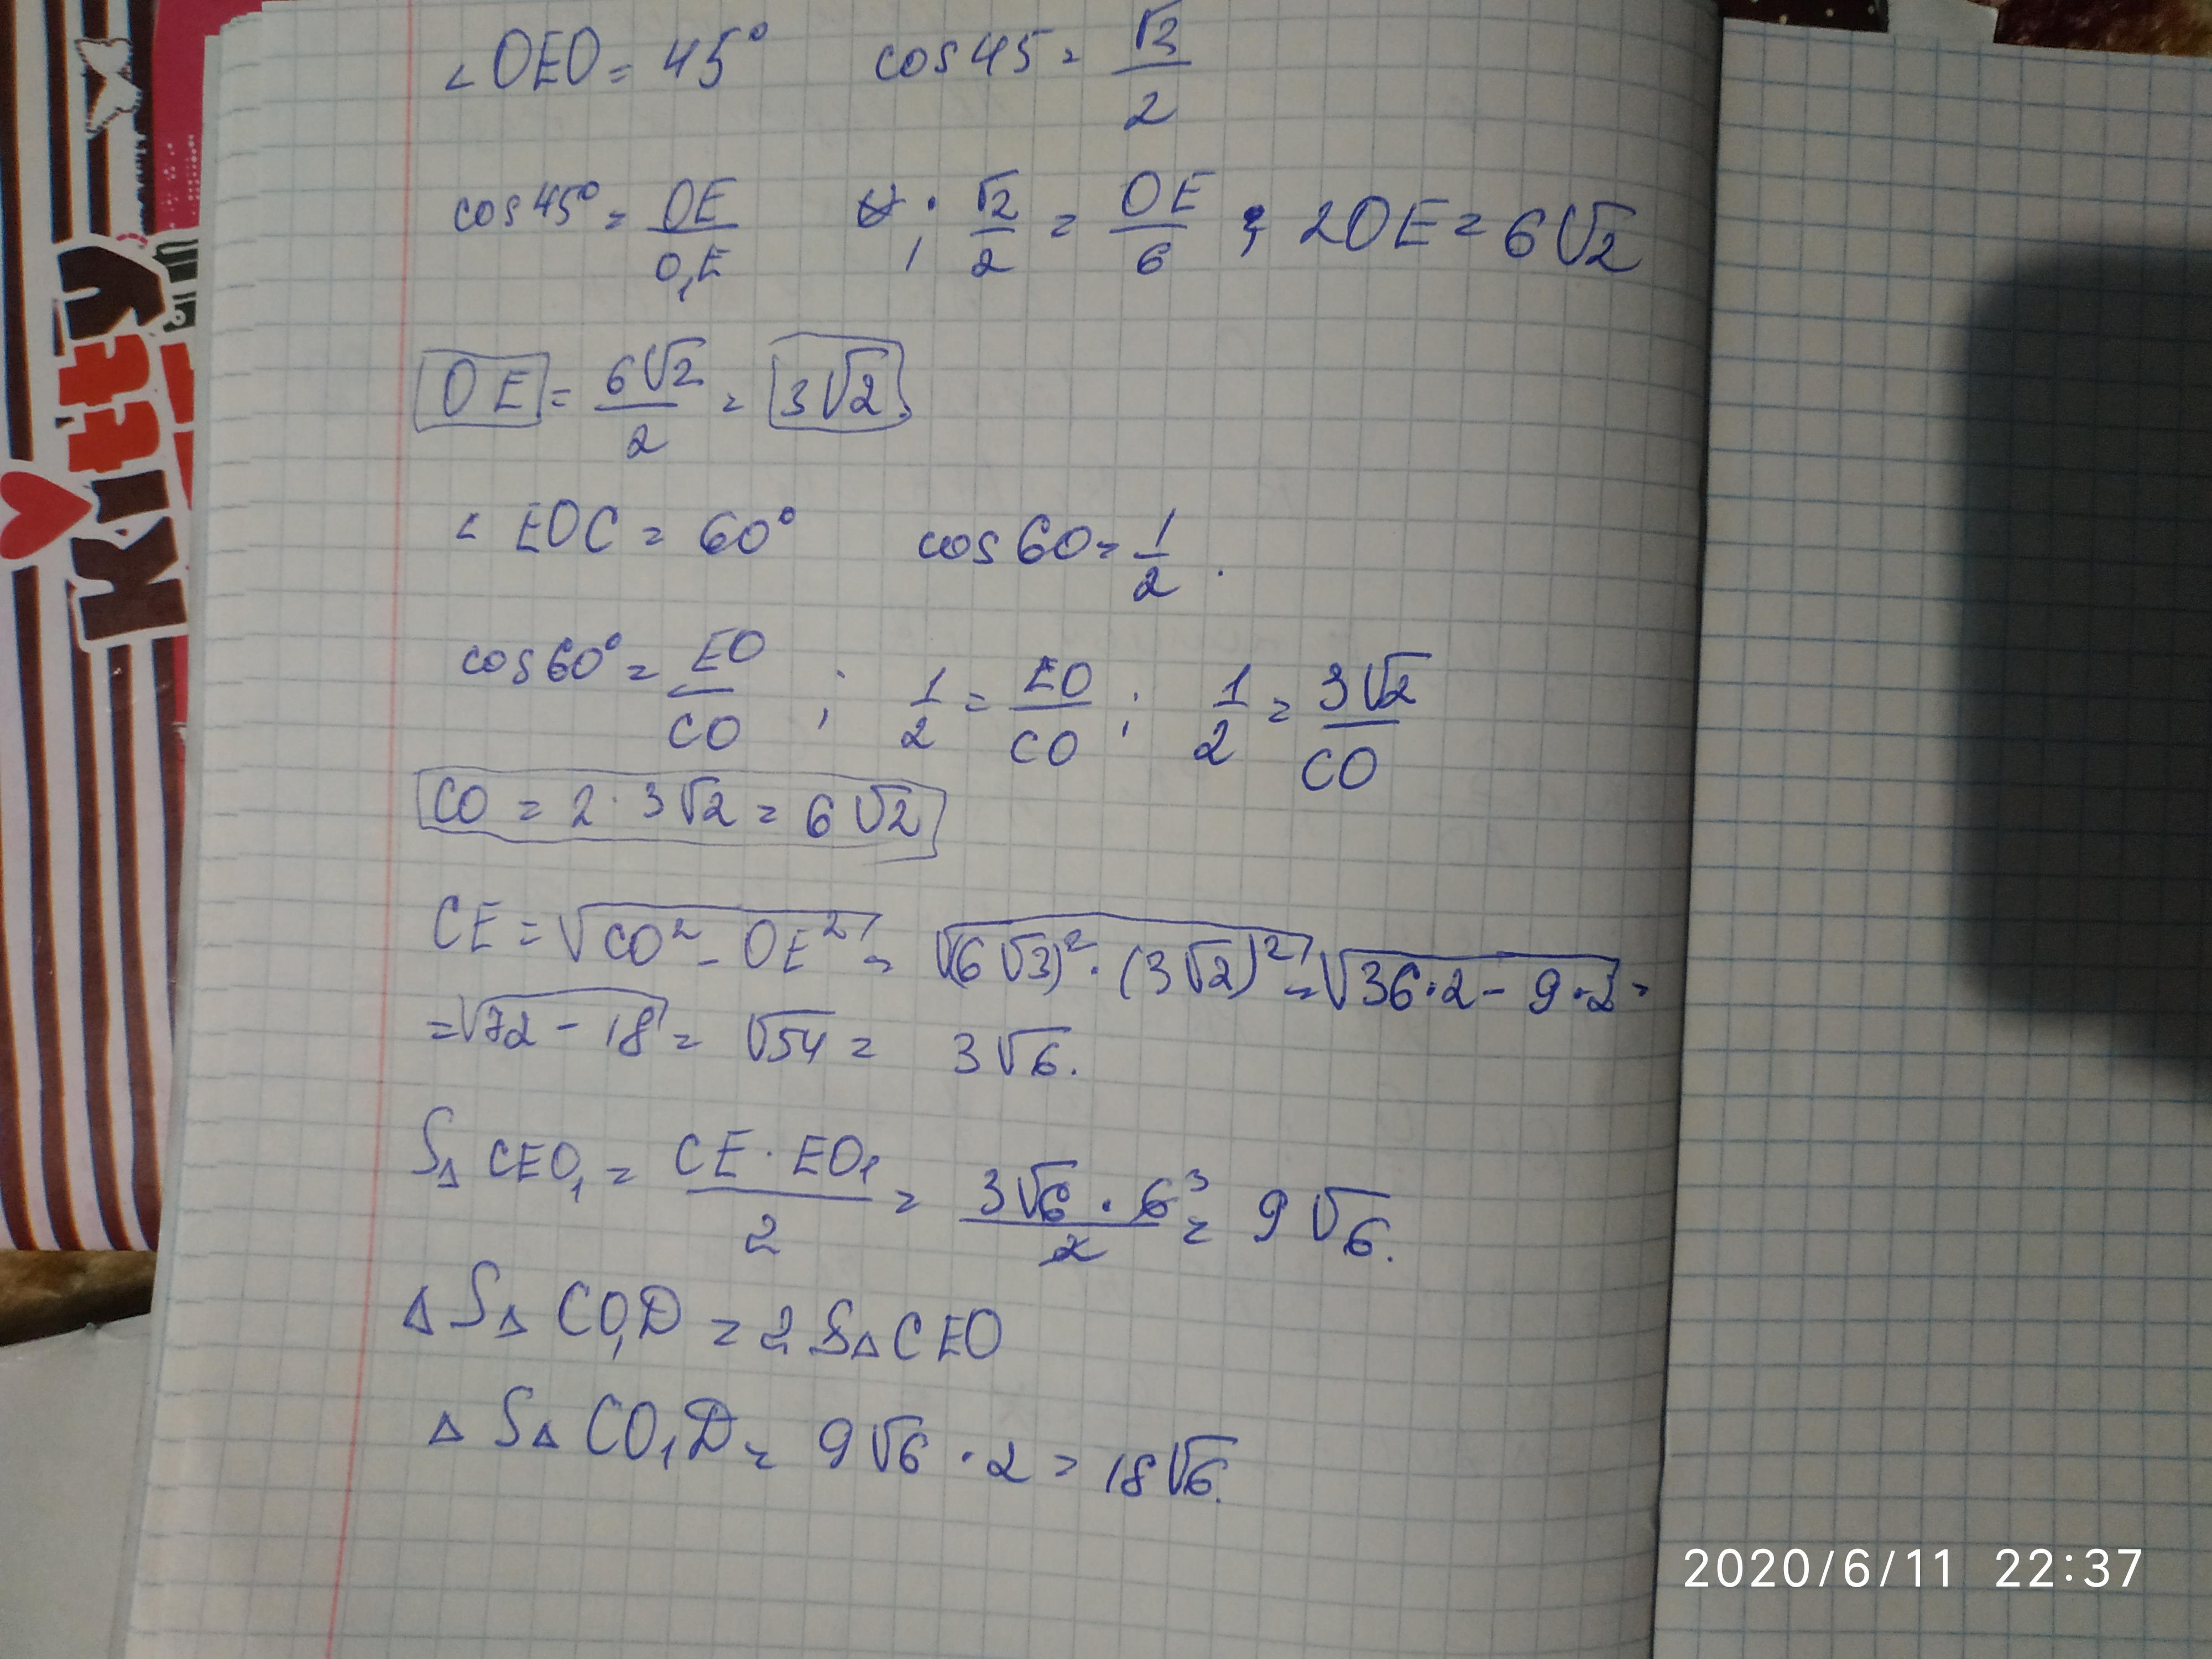 ∠ OEO = 45° cos 45 = √3/2
cos 45° = OE/O₁E ; √2/2 = OE/6 ; 2OE = 6√2
OE = 6√2/2 = 3√2.
∠ EOC = 60° cos 60 = 1/2.
cos 60° = EO/CO ; 1/2 = EO/CO ; 1/2 = 3√2/CO
CO = 2 · 3√2 = 6√2
CE = √(CO² - OE²) = √((6√3)² · (3√2)²) = √(36·2 - 9·2) =
= √(72 - 18) = √54 = 3√6.
S△ CEO₁ = CE · EO₁/2 = 3√6 · 6 3/2 = 9√6.
△ S△ CO₁D = 2 S△ CEO
△ S△ CO₁D = 9√6 · 2 = 18√6.
Kitty
2020/6/11 22:37